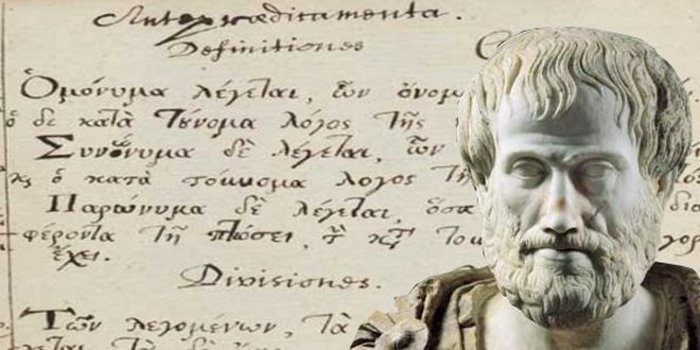 Antepraedicamenta.
Definitiones
Ὁμόνυμα λέγεται, ὧν ὄνομ
ὁ δὲ κατὰ τὔνομα λόγος τῆς
Συνώνυμα δὲ λέγεται, ὧν
κὶ ὁ κατὰ τοὔνομα λογος τῆ
Παρώνυμα δὲ λέγεται, ὅσα
φέροντα τῇ πτώσει, τὴν κατὰ του λογος
ἔχει.
Divisiones.
Τῶν λεγομένων, τὰ
λέγεται